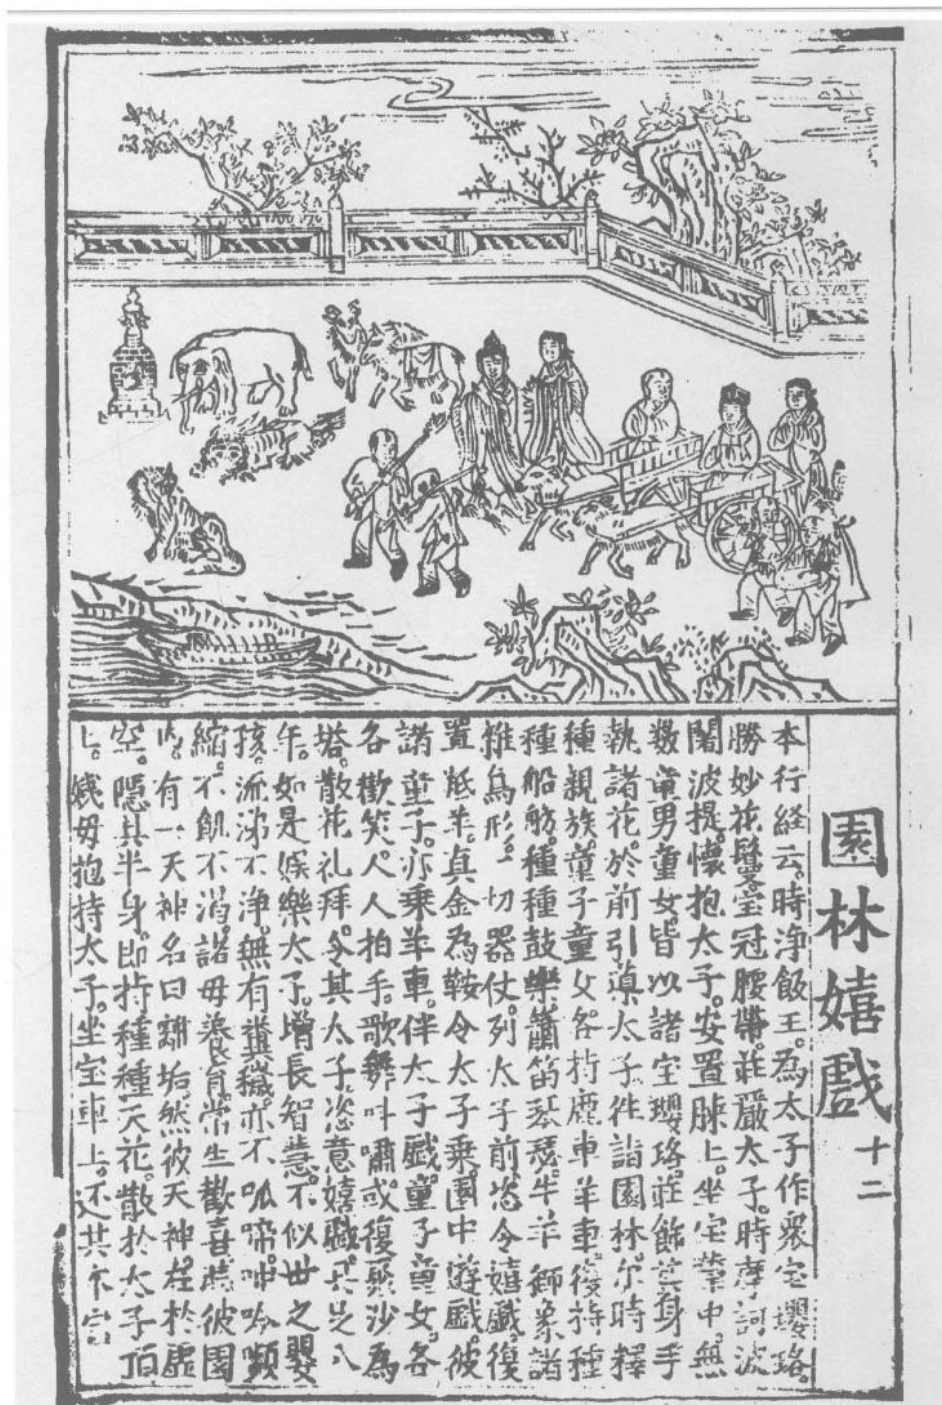 園林嬉戲 十二
本行経云。時浄飯王。為太子作衆宝瓔珞。
勝妙花鬘。宝冠腰帶。荘嚴太子。時摩訶波
闍波提。懷抱太子。安置膝上。坐宝輦中。無
数童男童女。皆以諸宝瓔珞。莊飾其身。手
執諸花。於前引導。太子往詣園林。尓時釋
種親族。童子童女。各持鹿車羊車。復持種
種船舫。種種鼓樂。簫笛琴瑟。牛羊獅象。諸
雜鳥形。一切器仗。列太子前。恣令嬉戲。復
置羝羊。真金為鞍。令太子乗。園中遊戲。彼
諸童子。亦乗羊車。伴太子戲。童子童女。各
各歡笑。人人拍手。歌舞呌嘯。或復聚沙為
塔。散花礼拜。令其太子。恣意嬉戲。共片八
年。如是娛樂太子。增長智慧。不似世之嬰
孩。流涕不浄。無有糞穢。亦不呱啼。呻吟嚬
縮。不飢不渴。諸母養育。常生歡喜。時彼園
内。有一天神。名曰離垢。然彼天神。在於虛
空。隱其半身。即持種種天花。散於太子頂
上。姨母抱持太子。坐宝車上。还其本宮